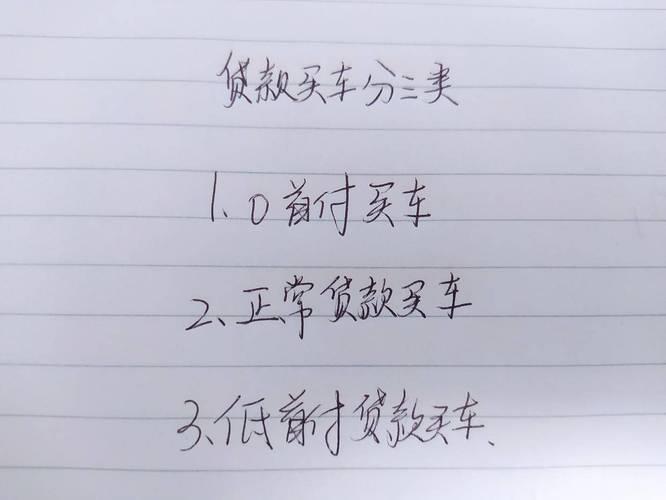 贷款买车分三类
1、0首付买车
2、正常贷款买车
3、低首付贷款买车、